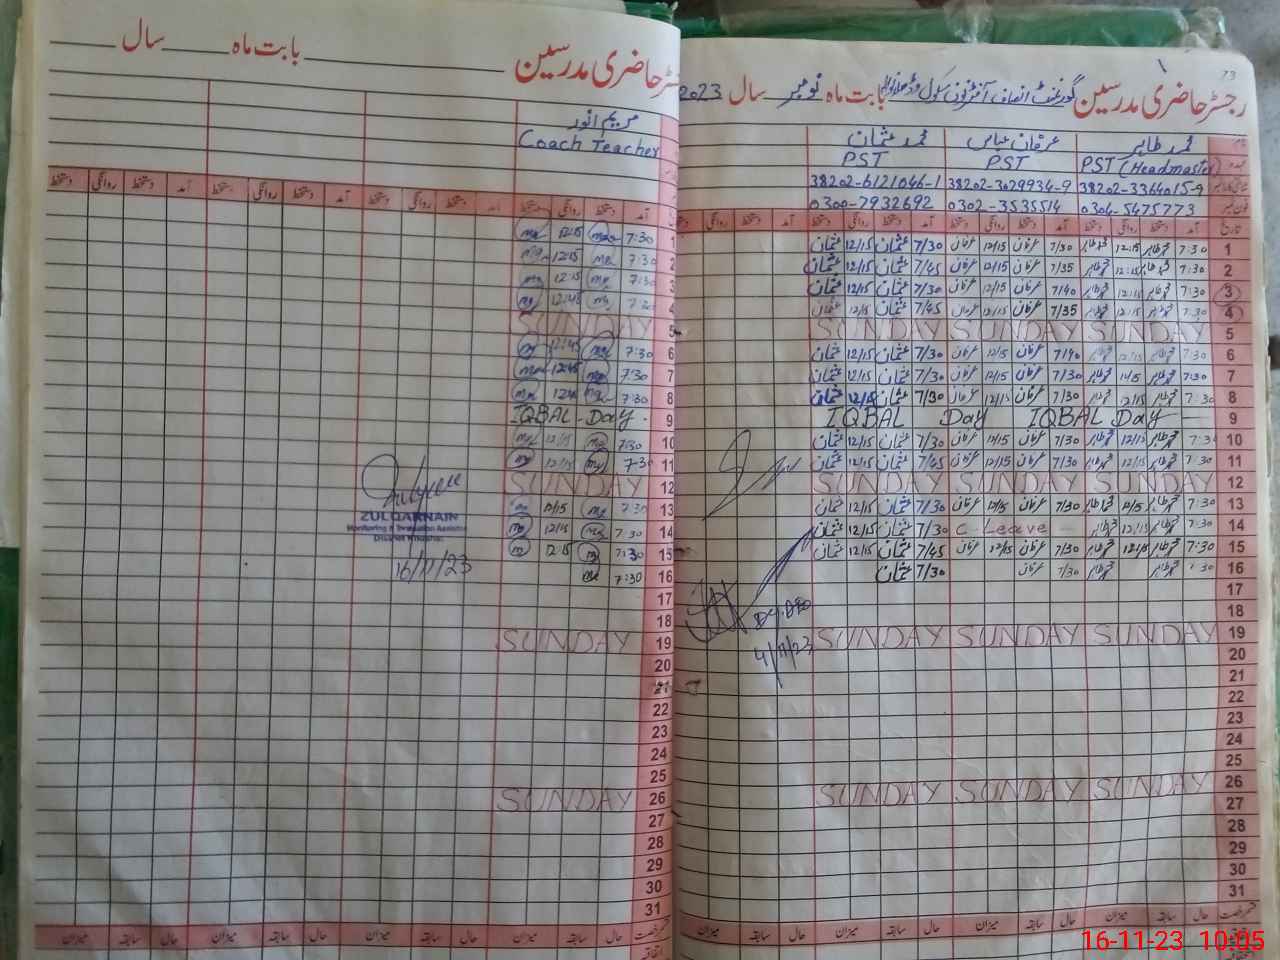 رجسٹر حاضری مدرسین گورنمنٹ انصاف آفٹرنون سکول بابت ماہ نومبر سال 2023
73
نام محمد طاہر عرفان عباس محمد عثمان
عہدہ PST (Headmaster) PST PST
38202-3364015-9 38202-3029934-9 38202-6121046-1
0304-5475773 0302-3535514 0300-7932692
تاریخ آمد دستخط روانگی دستخط آمد دستخط روانگی دستخط آمد دستخط روانگی دستخط آمد دستخط روانگی دستخط
1 7:30 محمد طاہر 12:15 محمد طاہر 7/30 عرفان 12/15 عرفان 7/30 عثمان 12/15 عثمان
2 7:30 محمد طاہر 12:15 محمد طاہر 7/35 عرفان 12/15 عرفان 7/45 عثمان 12/15 عثمان
3 7:30 محمد طاہر 12:15 محمد طاہر 7/40 عرفان 12/15 عرفان 7/30 عثمان 12/15 عثمان
4 7:30 محمد طاہر 12:15 محمد طاہر 7/35 عرفان 12/15 عرفان 7/45 عثمان 12/15 عثمان
5 SUNDAY SUNDAY SUNDAY
6 7:30 محمد طاہر 12/15 محمد طاہر 7/40 عرفان 12/15 عرفان 7/30 عثمان 12/15 عثمان
7 7:30 محمد طاہر محمد طاہر 7/30 عرفان 12/15 عرفان 7/30 عثمان 12/15 عثمان
8 7:30 محمد طاہر 12/15 محمد طاہر 7/30 عرفان 12/15 عرفان 7/30 عثمان 12/15 عثمان
9 IQBAL Day IQBAL Day
10 7:30 محمد طاہر 12/15 محمد طاہر 7/30 عرفان 12/15 عرفان 7/30 عثمان 12/15 عثمان
11 7:30 محمد طاہر 12/15 محمد طاہر 7/30 عرفان 12/15 عرفان 7/45 عثمان 12/15 عثمان
12 SUNDAY SUNDAY SUNDAY
13 7:30 محمد طاہر محمد طاہر 7/30 عرفان 12/15 عرفان 7/30 عثمان 12/15 عثمان
14 7:30 محمد طاہر 12/15 محمد طاہر C-Leave 7/30 عثمان 12/15 عثمان
15 7:30 محمد طاہر 12:15 محمد طاہر 7/30 عرفان 12/15 عرفان 7/45 عثمان 12/15 عثمان
16 7:30 محمد طاہر محمد طاہر 7/30 عرفان 7/30 عثمان
17
18
19 SUNDAY SUNDAY SUNDAY
20
21
22
23
24
25
26 SUNDAY SUNDAY SUNDAY
27
28
29
30
31
حال سابقہ میزان حال سابقہ میزان حال سابقہ میزان حال
Dy.DEO
4/11/23
رجسٹر حاضری مدرسین بابت ماہ سال
مریم انور
Coach Teacher
آمد دستخط روانگی دستخط آمد دستخط روانگی دستخط آمد دستخط روانگی دستخط آمد دستخط روانگی دستخط
1 7:30 12:15
2 7:30 12:15
3 7:30 12:15
4 7:30 12:45
5 SUNDAY
6 7:30 12:45
7 7:30 12:45
8 7:30
9 IQBAL-Day
10 7:30 12/15
11 7:30 12/15
12 SUNDAY
13 7:30 12/15
14 7:30 12/15
15 7:30 12:15
16 7:30
17
18
19 SUNDAY
20
21
22
23
24
25
26 SUNDAY
27
28
29
30
31
حال سابقہ میزان حال سابقہ میزان حال سابقہ میزان حال سابقہ میزان
ZULQARNAIN
Monitoring & Evaluation Assistant
District Khushab
16/11/23
16-11-23 10:05